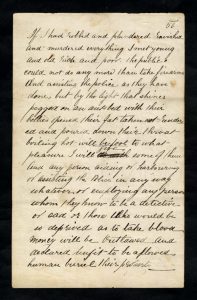 56
If I had robbed and plundered Ravished
and murdered everything I met young
and old Rich and poor. the public
could not do any more than take firearms
And assisting the police as they have
done, but by the light that shines
pegged on an ant bed with their
bellies opened their fat taken out rendered
and poured down their throat
boiling hot will be fool to what
pleasure I will some of them
and any person aiding or harbouring
or assisting the Police in any way
whatever or employing any person
whom they know to be a detective
or cad or those who would be
so deprived as to take blood
money will be outlawed and
declared unfit to be allowed
human buriel their property